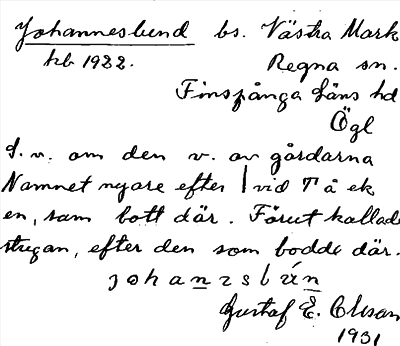 Johannesbund bs. Västra Mark
hb 1922. Regna sn.
Finspånga läns hd
Ögl
S. v. om den v. av gårdarna
Namnet nyare efter | vid T å ek
en, sam bott där. Förut kallade
stugan, efter den som bodde där.
johanesbún
Gustaf E. Olson
1931